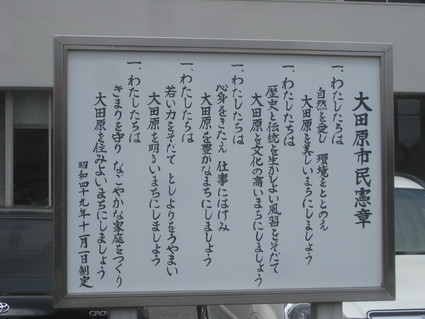 大田原市民憲章
一、わたしたちは
自然を愛し 環境をととのえ
大田原を美しいまちにしましょう
一、わたしたちは
歴史と伝統を生かしよい風習をそだて
大田原を文化の高いまちにしましょう
一、わたしたちは
心身をきたえ 仕事にはげみ
大田原を豊かなまちにしましょう
一、わたしたちは
若い力をそだて としよりをうやまい
大田原を明るいまちにしましょう
一、わたしたちは
きまりを守り なごやかな家庭をつくり
大田原を住みよいまちにしましょう
昭和四十九年十一月一日制定
CROW